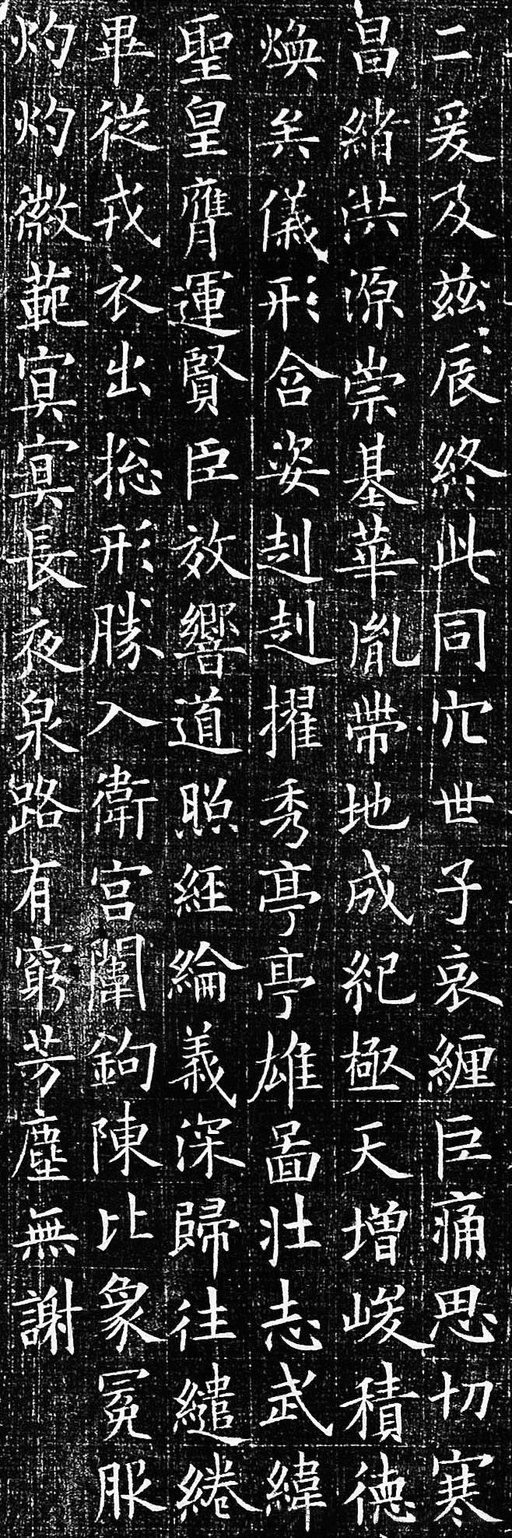 二爰及兹辰終此同穴世子哀纏巨痛思切寒
昌緒洪源崇基華胤帶地成紀極天增峻積德
煥矣儀形含姿赳赳擢秀亭亭雄啚壯志武緯
聖皇膺運賢臣放響道照經綸義深歸往繾綣
畢從戎衣出揔形勝入衛宮闈鉤陳比象冕服
灼灼徽範寘寘長夜泉路有窮芳塵無謝